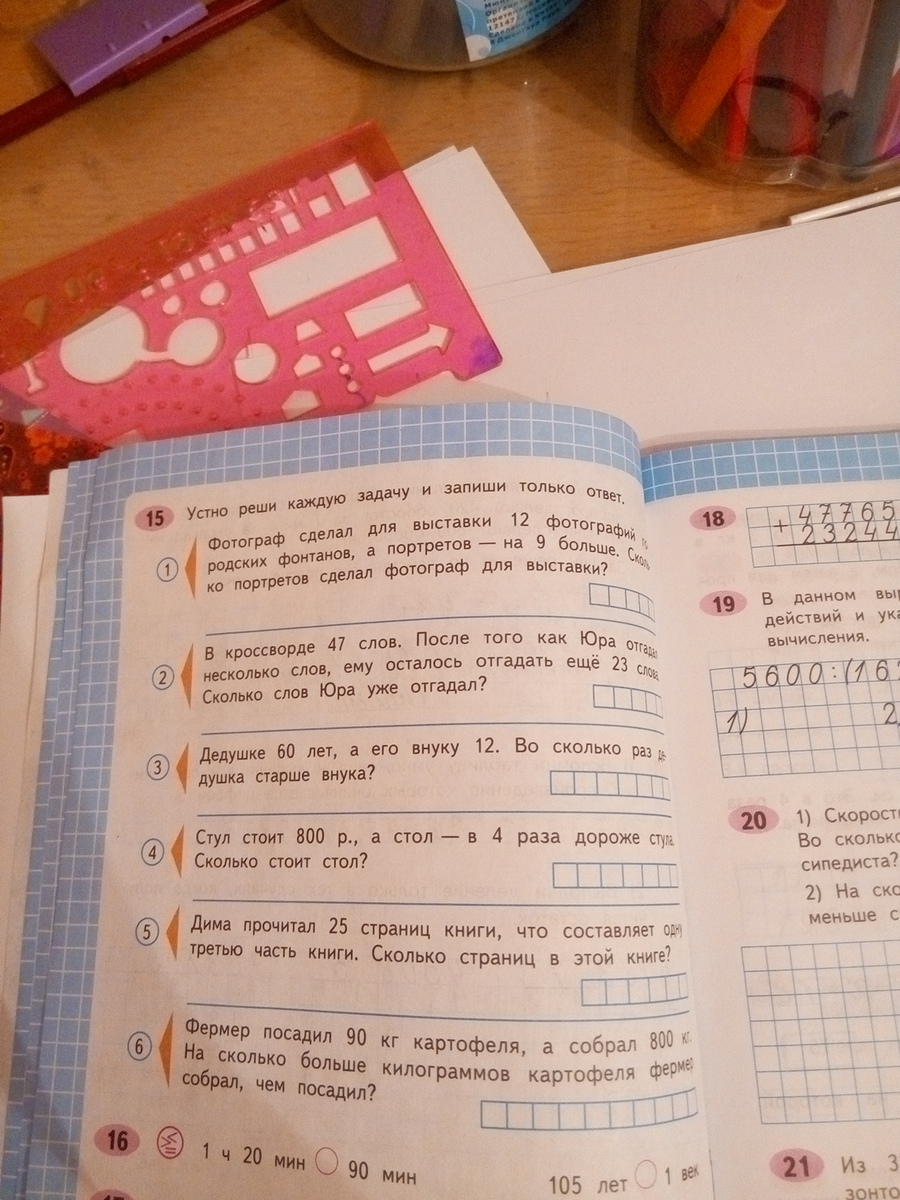 15 Устно реши каждую задачу и запиши только ответ.
1 Фотограф сделал для выставки 12 фотографий
родских фонтанов, а портретов — на 9 больше. Сколь
ко портретов сделал фотограф для выставки?
2 В кроссворде 47 слов. После того как Юра отгадал
несколько слов, ему осталось отгадать ещё 23 слова.
Сколько слов Юра уже отгадал?
3 Дедушке 60 лет, а его внуку 12. Во сколько раз де-
душка старше внука?
4 Стул стоит 800 р., а стол — в 4 раза дороже стула.
Сколько стоит стол?
5 Дима прочитал 25 страниц книги, что составляет одну
третью часть книги. Сколько страниц в этой книге?
6 Фермер посадил 90 кг картофеля, а собрал 800 кг.
На сколько больше килограммов картофеля фермер
собрал, чем посадил?
16 1 ч 20 мин 90 мин 105 лет 1 век
18 + 47765
23244
19 В данном выр
действий и ука
вычисления.
5600:(16
1) 2
20 1) Скорост
Во сколько
сипедиста?
2) На ско
меньше с
21 Из 3
зонто